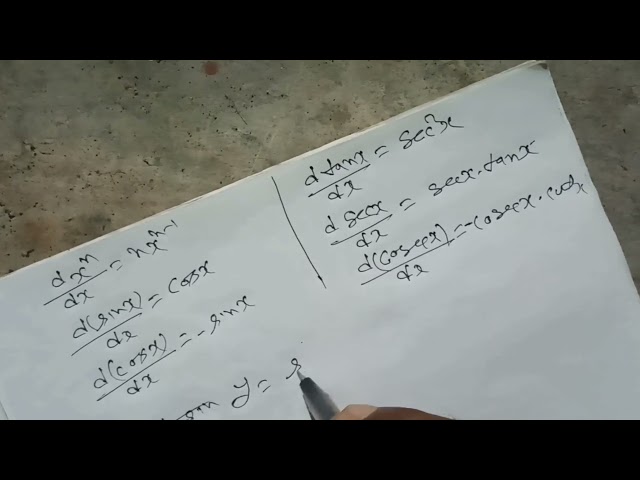 dxⁿ/dx = nxⁿ⁻¹
d(sinx)/dx = cosx
d(cosx)/dx = -sinx
dtanx/dx = sec²x
dsecx/dx = secx.tanx
d(cosecx)/dx = -cosecx.cotx
y = s